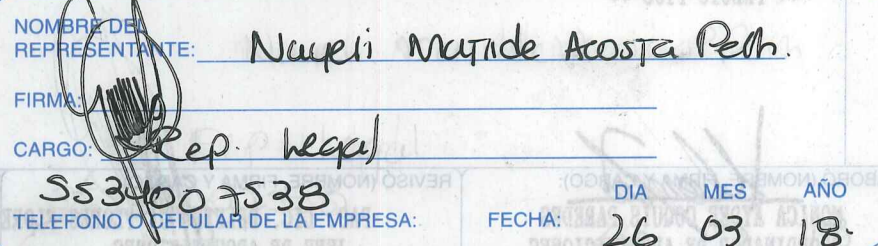 NOMBRE DEL
REPRESENTANTE: Nayeli Matilde Acosta
FIRMA:
CARGO: Rep. Legal
553400 7538
TELEFONO O CELULAR DE LA EMPRESA:
FECHA: DIA MES AÑO
26 03 18.